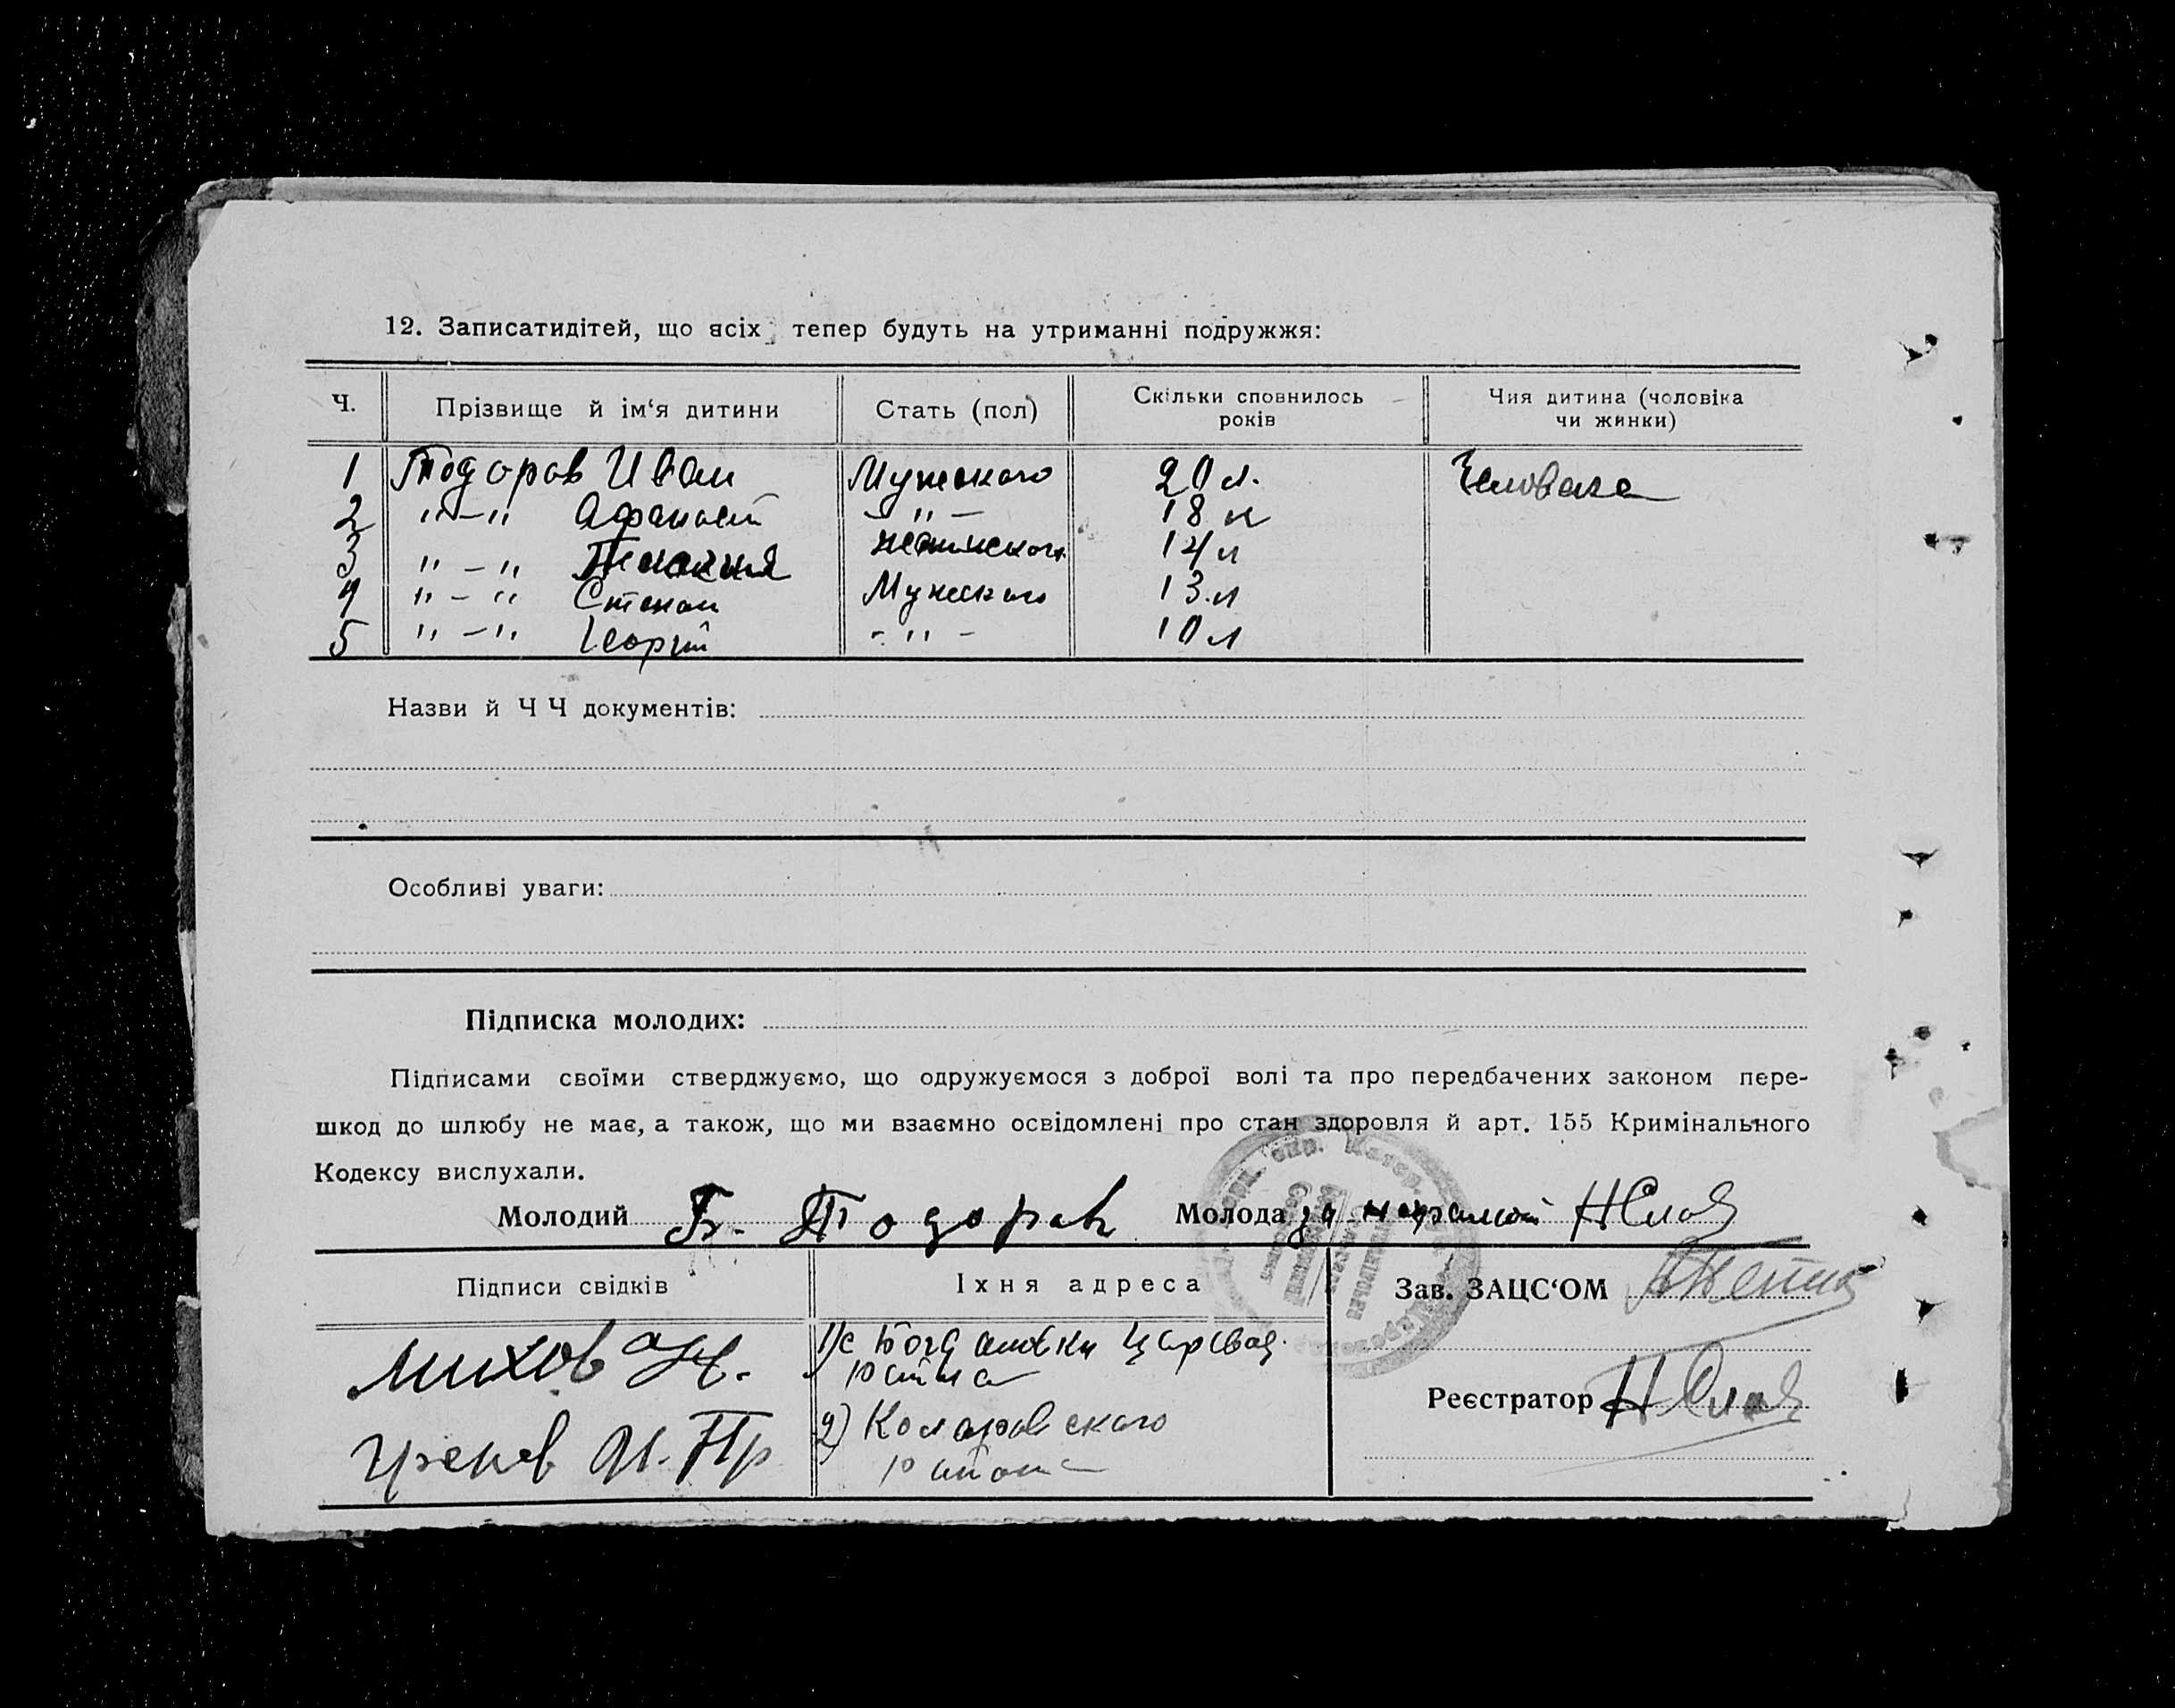 12. Записатидітей, що всіх тепер будуть на утриманні подружжя:
Ч. Прізвище й ім‘я дитини Стать (пол) Скільки сповнилось років Чия дитина (чоловіка чи жинки)
1 Тодоров Иван Мужского 20 л. Человека
2 "—" Афанасий —"— 18 л
3 "—" женского 14 л
4 "—" Степан Мужского 13 л
5 "—" Георгий —"— 10 л
Назви й Ч Ч документів:
Особливі уваги:
Підписка молодих:
Підписами своїми стверджуємо, що одружуємося з доброї волі та про передбачених законом пере-
шкод до шлюбу не має, а також, що ми взаємно освідомлені про стан здоровля й арт. 155 Кримінального
Кодексу вислухали.
Молодий Тодоров Молода за
Підписи свідків Їхня адреса Зав. ЗАЦС‘ОМ
Михов 1) с Богдановки Царевод.
района
Реєстратор
Греков 2) Коларовского
района